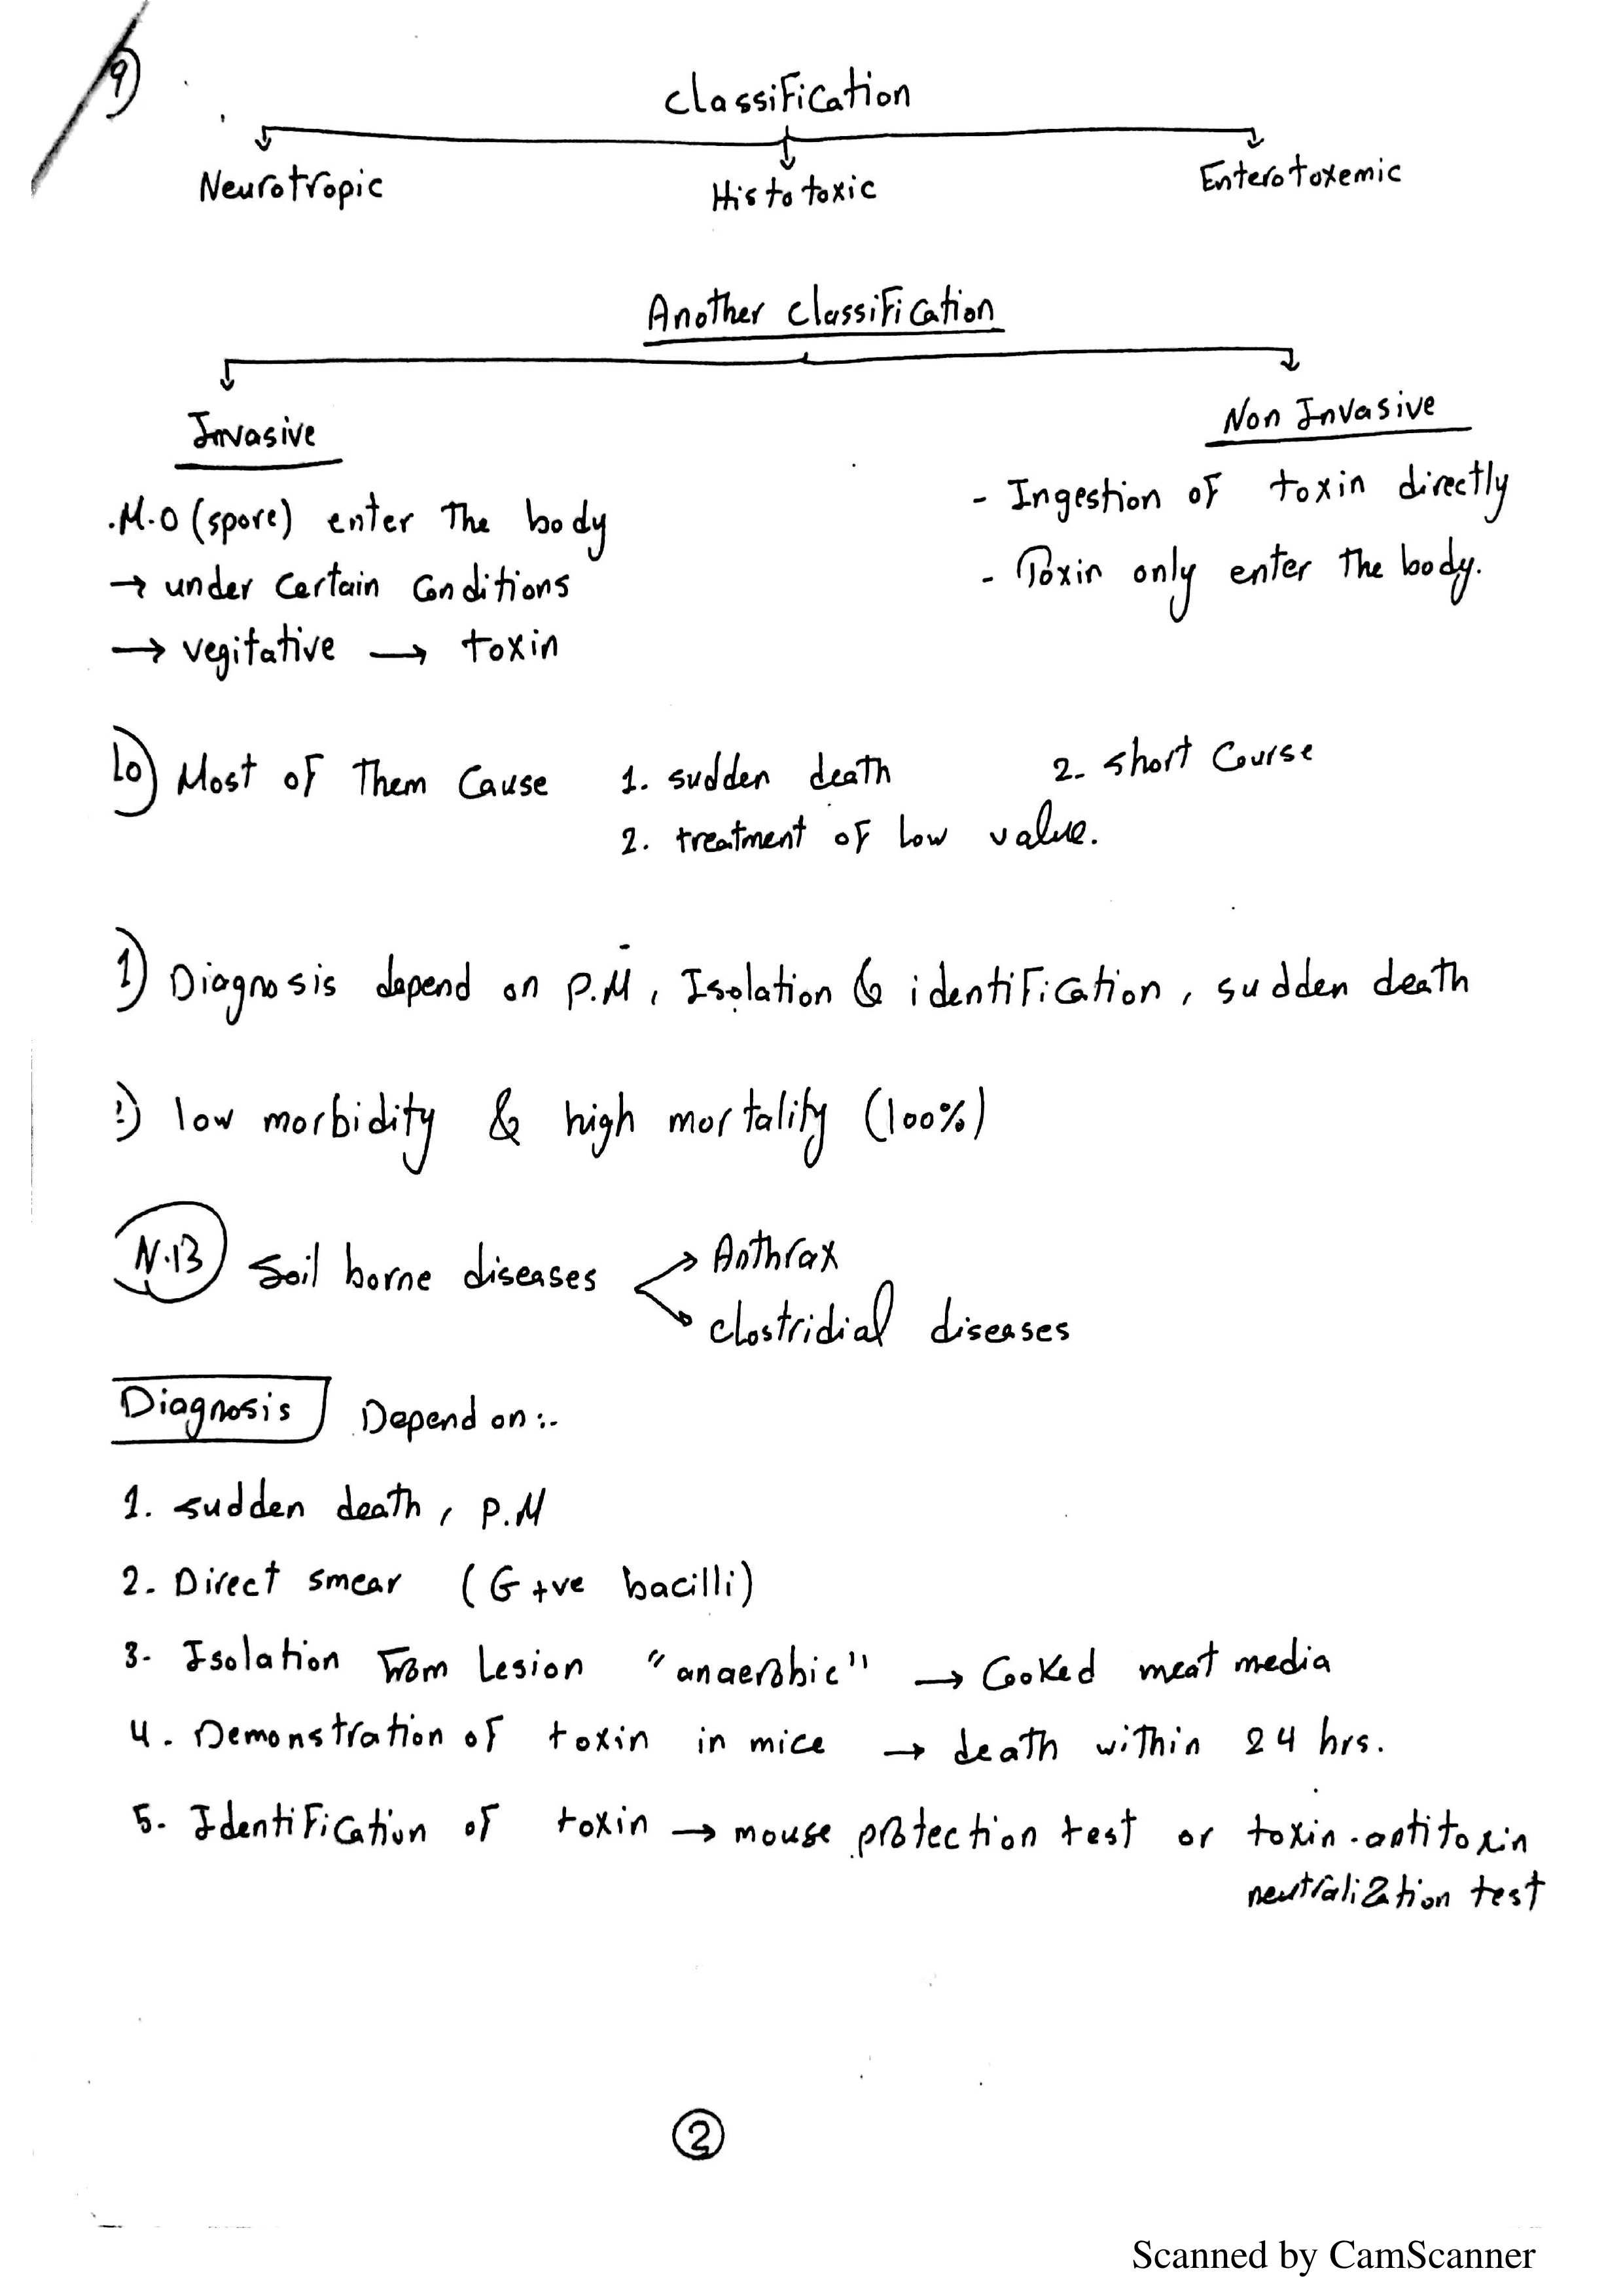 9)
Classification
Neurotropic Histotoxic Enterotoxemic
Another Classification
Invasive Non Invasive
.M.O (spore) enter the body
→ under certain conditions
→ vegitative → toxin
- Ingestion of toxin directly
- Toxin only enter the body.
10) Most of them cause 1. sudden death 2. short course
2. treatment of low value.
1) Diagnosis depend on P.M, Isolation & identification, sudden death
2) low morbidity & high mortality (100%)
N.13 Soil borne diseases Anthrax
clostridial diseases
Diagnosis Depend on :-
1. sudden death, P.M
2. Direct smear (G +ve bacilli)
3. Isolation from lesion "anaerobic" → Cooked meat media
4. Demonstration of toxin in mice → death within 24 hrs.
5. Identification of toxin → mouse protection test or toxin-antitoxin
neutralization test
2
Scanned by CamScanner